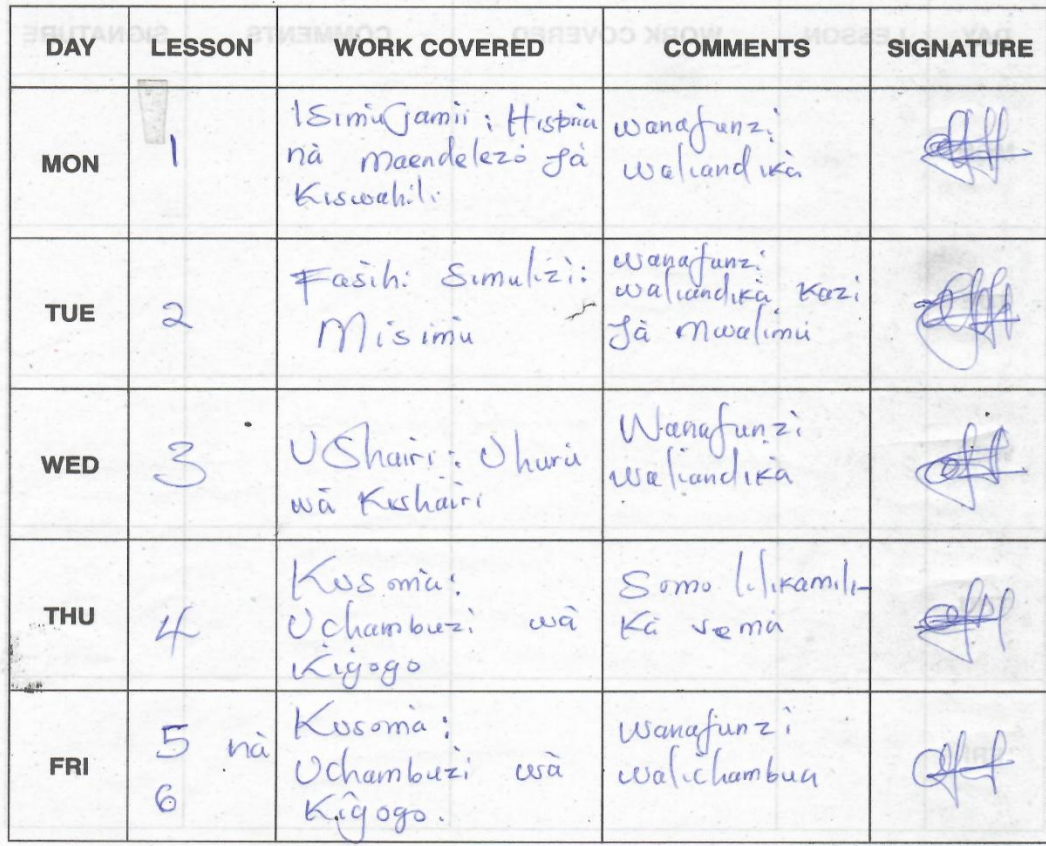 DAY LESSON WORK COVERED COMMENTS SIGNATURE
MON
1
Isimujamii : Historia
na maendelezo ya
Kiswahili
wanafunzi
waliandika
TUE
2
Fasihi Simulizi:
Misimu
wanafunzi
waliandika kazi
ya mwalimu
WED
3
UShairi : Uhuru
wa Kishairi
Wanafunzi
waliandika
THU
4
Kusoma :
Uchambuzi wa
Kigogo
Somo lilikamili-
ka vema
FRI
5 na
6
Kusoma :
Uchambuzi wa
Kigogo.
wanafunzi
walichambua